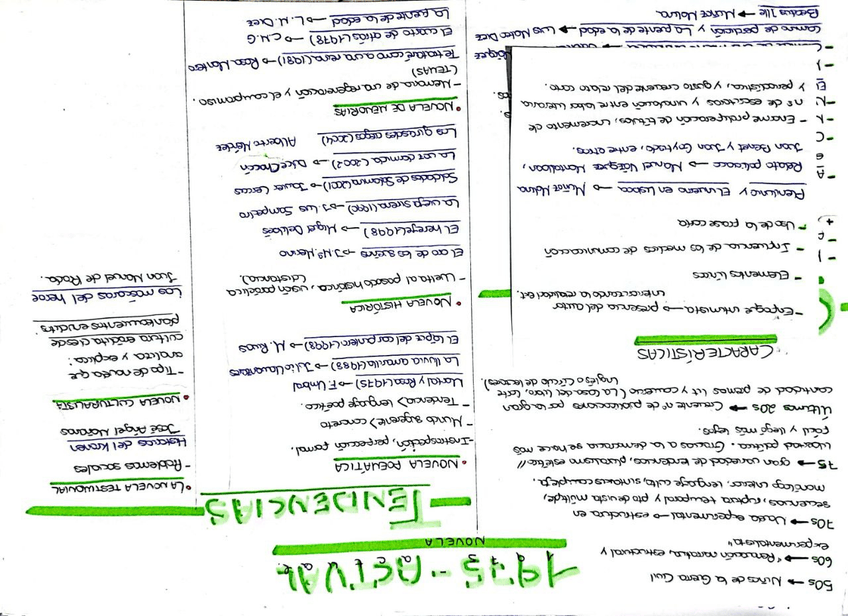 1975 - ACTUAL
NOVELA
50s → Niños de la Guerra Civil
60s → "Renovación narrativa, estructural y
experimentalista"
70s → Novela experimental → estructura en
secuencias, ruptura temporal y pto de vista múltiple,
monólogo interior, lenguaje culto, sintaxis compleja.
75 → gran variedad de tendencias, pluralismo estético //
libertad política. Gracias a la democracia se hace más
fácil y llegó más lejos.
Últimos 20s → Creciente nº de publicaciones por la gran
cantidad de premios lit y
Inglés o Círculo de lectores).
CARACTERÍSTICAS
- Enfoque intimista → presencia del autor
interiorizando la realidad ext.
- Elementos líricos
- Influencia de los medios de comunicación
- Uso de la frase corta
Plenilunio y El invierno en Lisboa → Muñoz Molina
Relato policiaco → Manuel Vázquez Montalbán,
Juan Benet y Juan Goytisolo, entre otros.
- Enorme proliferación de títulos, incremento de
nº de escritores y vinculación entre obra literaria
y periodística, y gusto creciente del relato corto.
Camino de perdición y La fuente de la edad → Luis Mateo Díez
Beatus Ille → Muñoz Molina
TENDENCIAS
• NOVELA POEMÁTICA
- Introspección, perfección formal.
- Mundo sugerente > concreto
- Tendencia > lenguaje poético.
Mortal y Rosa (1975) → F. Umbral
La lluvia amarilla (1988) → Julio Llamazares
El lápiz del carpintero (1998) → M. Rivas
• NOVELA HISTÓRICA
- Vuelta al pasado histórico, visión paródica
(historia).
El oro de los sueños → J. Mª Merino
El hereje (1998) → Miguel Delibes
La vieja sirena (1990) → J. Luis Sampedro
Soldados de Salamina (2001) → Javier Cercas
La voz dormida (2002) → Dulce Chacón
Los girasoles ciegos (2004) Alberto Méndez
• NOVELA DE MEMORIAS
- Memoria de una regeneración y el compromiso.
(TEMAS)
Te trataré como a una reina (1981) → Rosa Montero
El cuarto de atrás (1978) → C.M.G
La fuente de la edad → L. M. Díez
• LA NOVELA TESTIMONIAL
- Problemas sociales
Historias del Kronen
José Ángel Mañas
• NOVELA CULTURALISTA
- Tipo de novela que
analiza y explica
cultura erudita desde
planteamientos erudits.
Las máscaras del héroe
Juan Manuel de Prada.